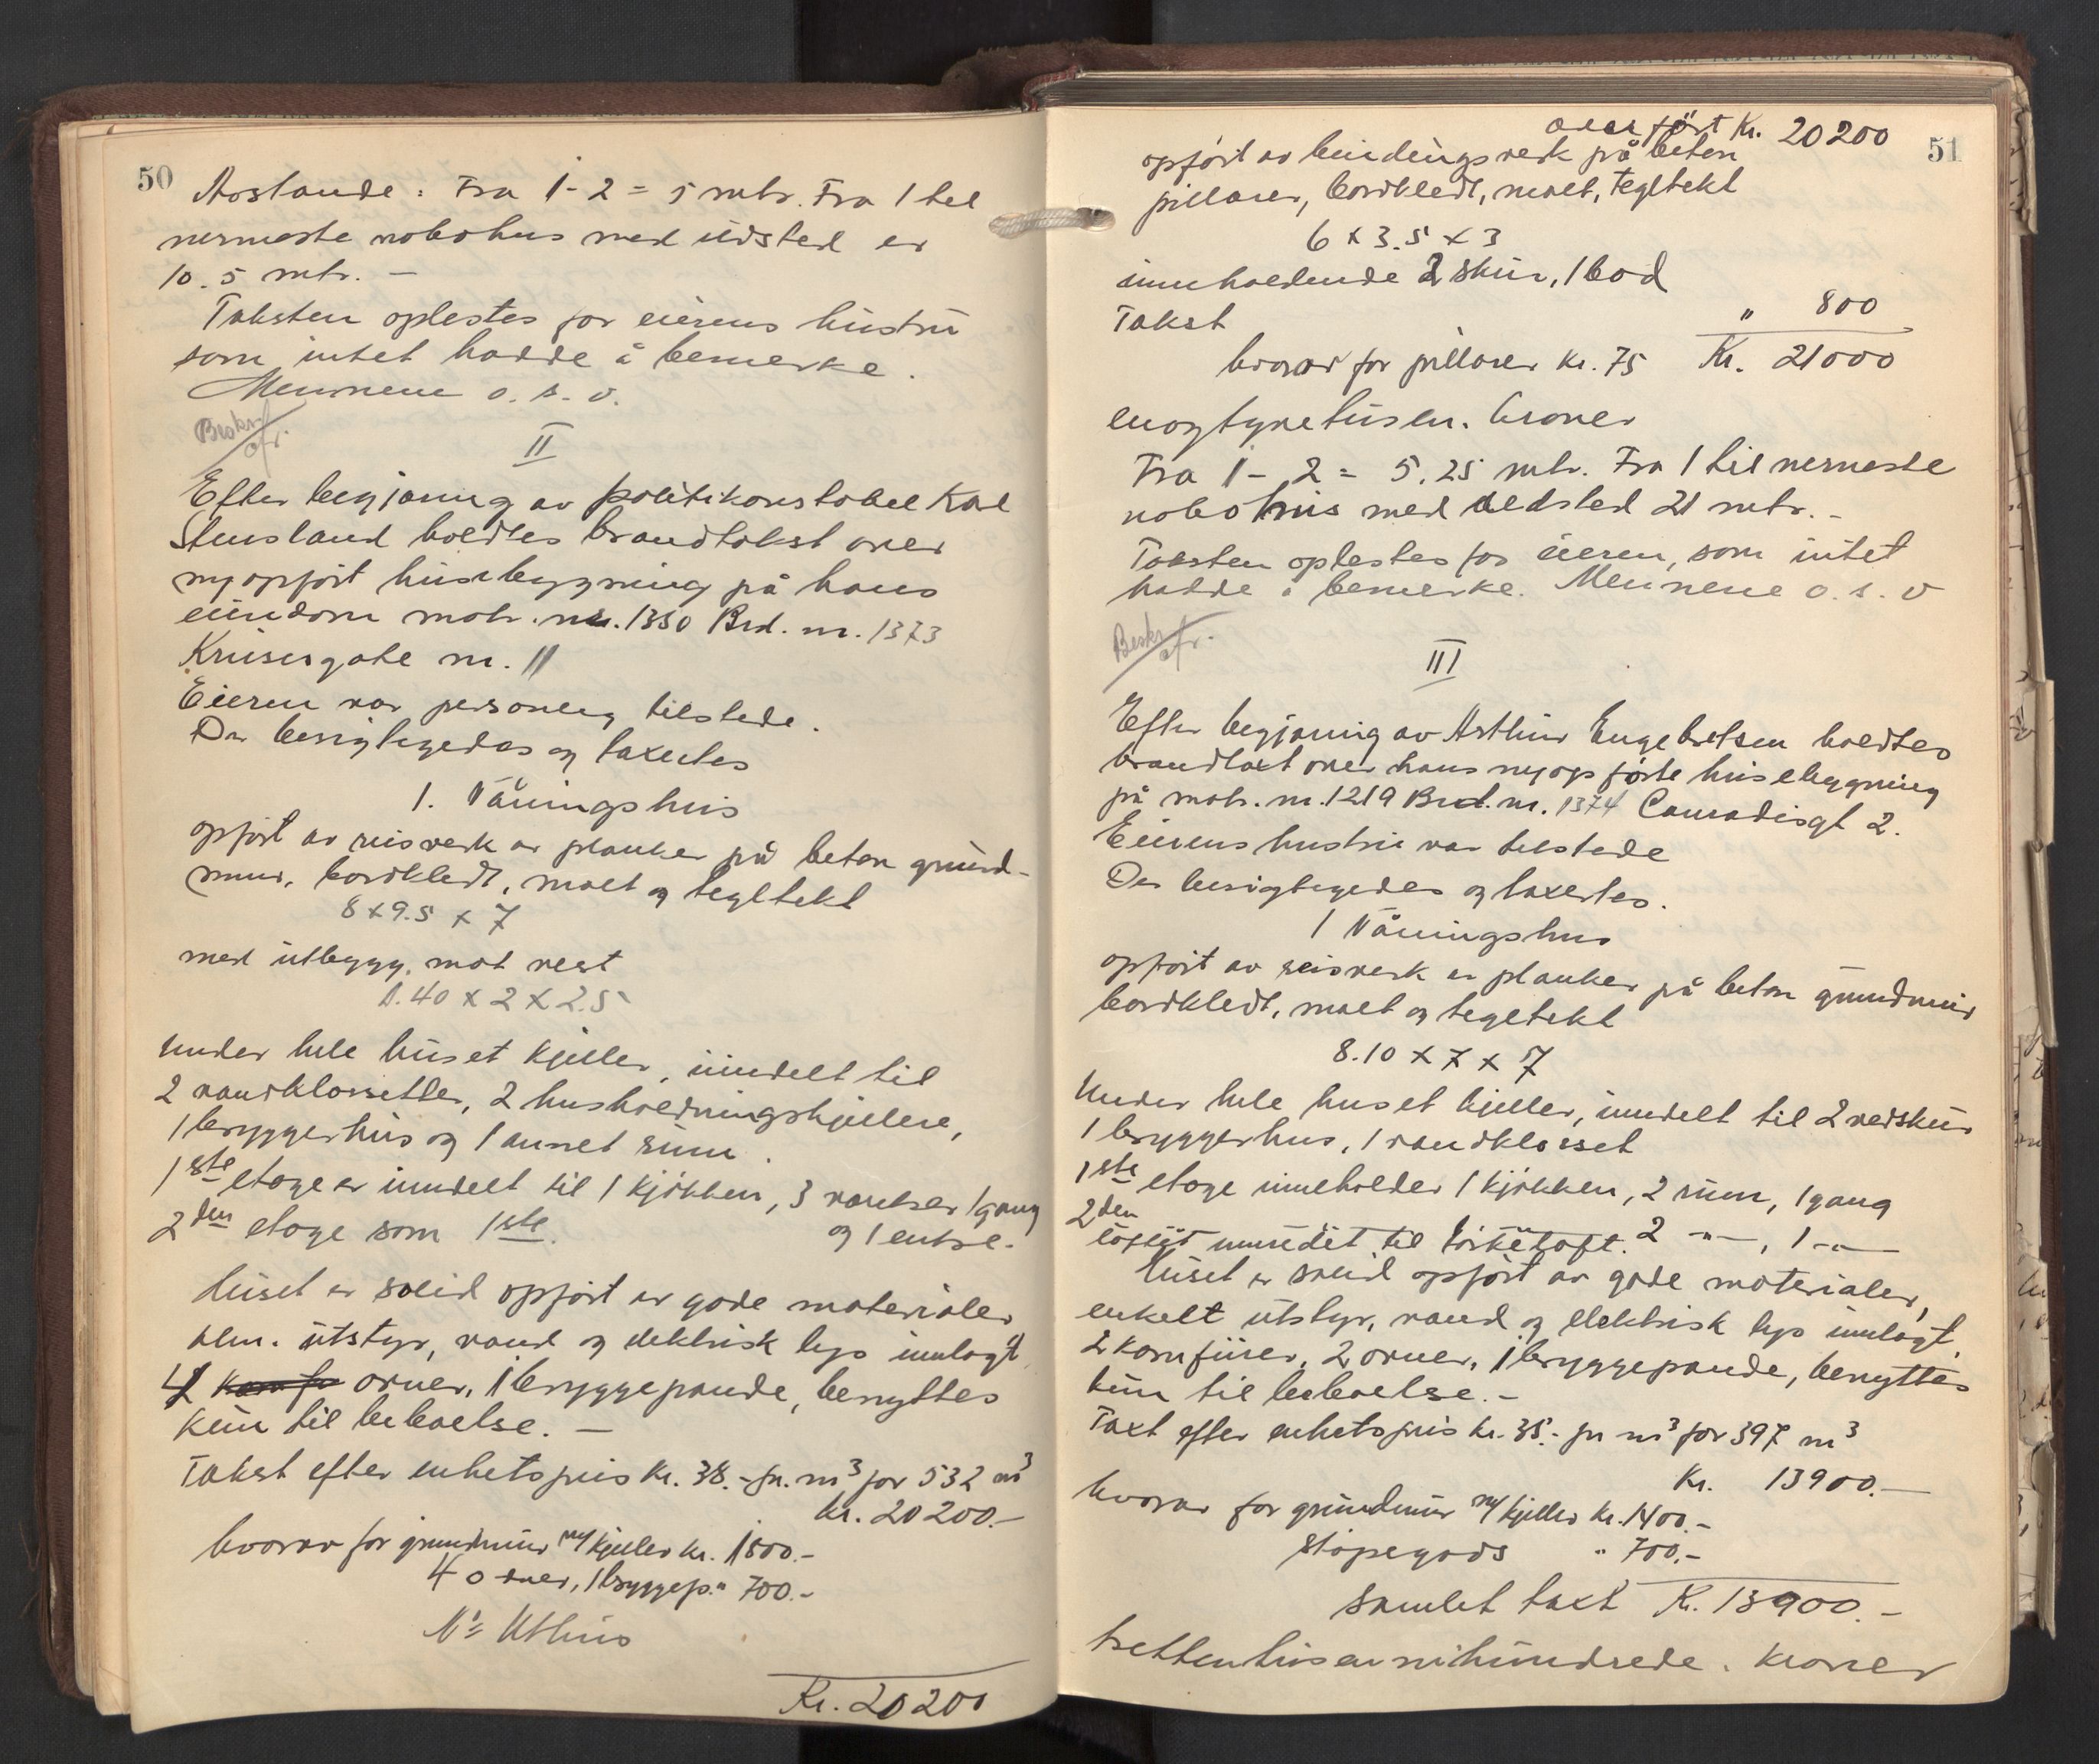 50
Avstande: Fra 1 - 2 = 5 mtr. Fra 1 til
nermeste nabohus med ildsted er
10.5 mtr. —
Taksten oplestes for eierens hustru
som intet hadde å bemerke.
Mennene o. s. v.
Beskr. afr.
II
Efter begjæring av politikonstabel Karl
Stensland holdtes brandtakst over
nyopført husebygning på hans
eiendom matr. nr. 1350 Brd. nr. 1373
Krusesgate nr. 11
Eieren var personlig tilstede.
Der besigtigedes og taxertes
1. Våningshus
opført av reisverk av planker på beton grund-
mur, bordkledt, malt og tegltekt
8 x 9.5 x 7
med utbygg. mot vest
1.40 x 2 x 2.5
Under hele huset kjeller, inndelt til
2 vandklossetter, 2 husholdningskjellere,
1 bryggerhus og 1 annet rum.
1ste etage er inndelt til 1 kjøkken, 3 værelser 1 gang
2den etage som 1ste. og 1 entre.
Huset er solid opført av gode materialer
alm. utstyr, vand og elektrisk lys innlagt
4 komfu ovner, 1 bryggepande, benyttes
kun til beboelse. —
Takst efter enhetspris kr. 38.- pr. m³ for 532 m³
kr. 20200.-
hvorav for grundmur m/ kjeller kr. 1800.-
4 ovner, 1 bryggep. " 700.-
No 2 Uthus
Kr. 20200
51
overført Kr. 20200
opført av bindingsverk på beton
pillarer, bordkledt, malt, tegltekt
6 x 3.5 x 3
inneholdende 2 skur, 1 bod
Takst " 800
hvorav for pillarer kr. 75 Kr. 21000
enogtyvetusen. kroner
Fra 1 - 2 = 5.25 mtr. Fra 1 til nermeste
nabohus med ildsted 21 mtr. -
Taksten oplestes for eieren, som intet
hadde å bemerke. Mennene o. s. v
Beskr. afr.
III
Efter begjæring av Arthur Engebretsen holdtes
brandtaxt over hans nyopførte husebygning
på matr. nr. 1219 Brd. nr. 1374 Conradisgt 2.
Eierens hustru var tilstede
Der besigtigedes og taxertes.
1 Våningshus
opført av reisverk av planker på beton grundmur
bordkledt, malt og tegltekt
8.10 x 7 x 7
Under hele huset kjeller, inndelt til 2 vedskur
1 bryggerhus, 1 vandklosset
1ste etage inneholder 1 kjøkken, 2 rum, 1 gang
2den loftet innredet til tørkeloft. 2 -"-, 1 -"-
Huset er solid opført av gode materialer,
enkelt utstyr, vand og elektrisk lys innlagt.
2 komfurer, 2 ovner, 1 bryggepande, benyttes
kun til beboelse. -
Taxt efter enhetspris kr. 35.- pr m³ for 397 m³
Kr. 13900.—
hvorav for grundmur m/ kjeller kr. 1400.-
støpegods " 700.-
Samlet taxt K. 13900.-
trettentusennihundrede. kroner